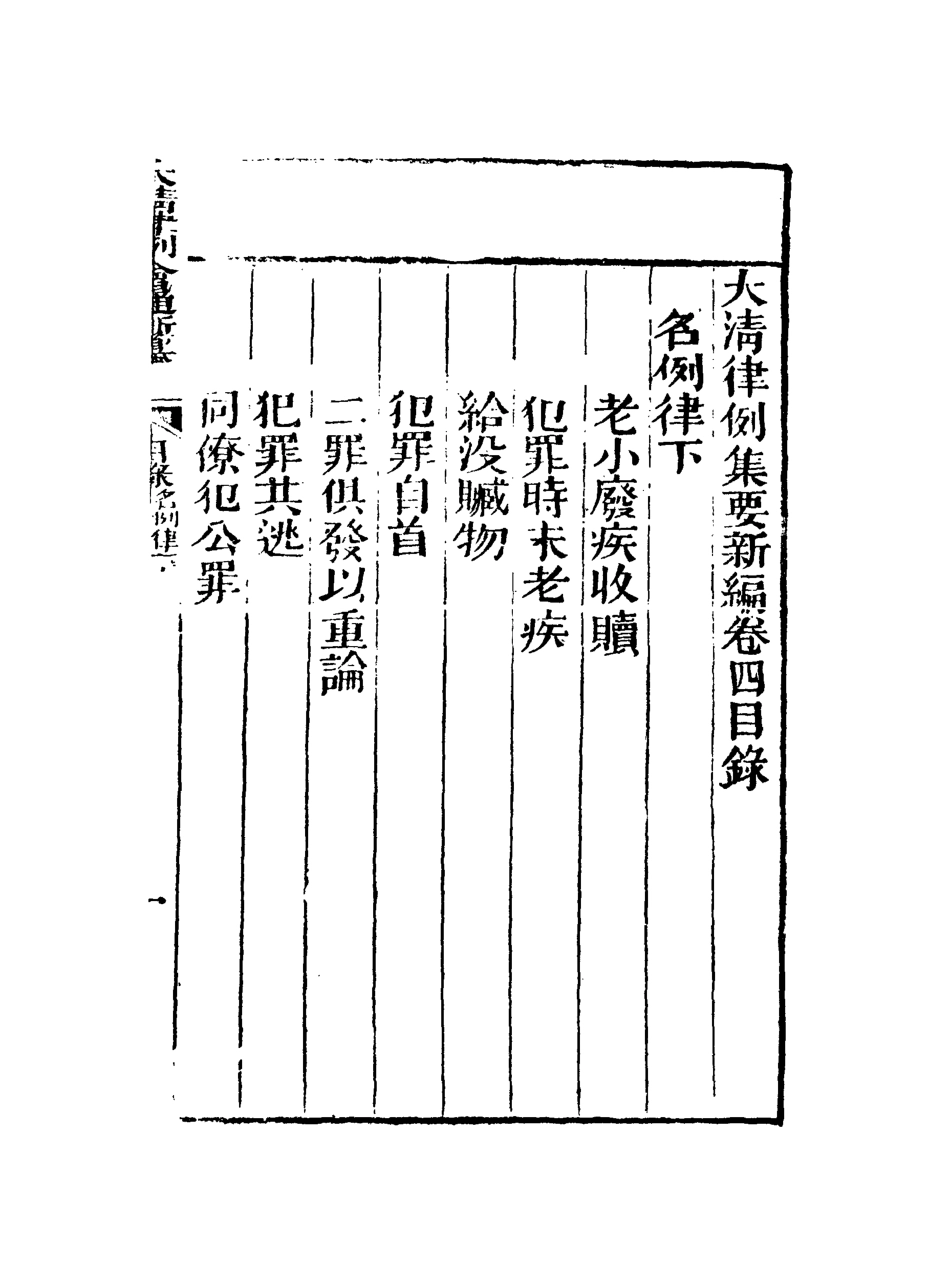 大清律例集要新編卷四目錄
名例律下
老小廢疾收贖
犯罪時未老疾
給没贓物
犯罪自首
二罪俱發以重論
犯罪共逃
同僚犯公罪
大清律例會通新纂
目錄名例律下